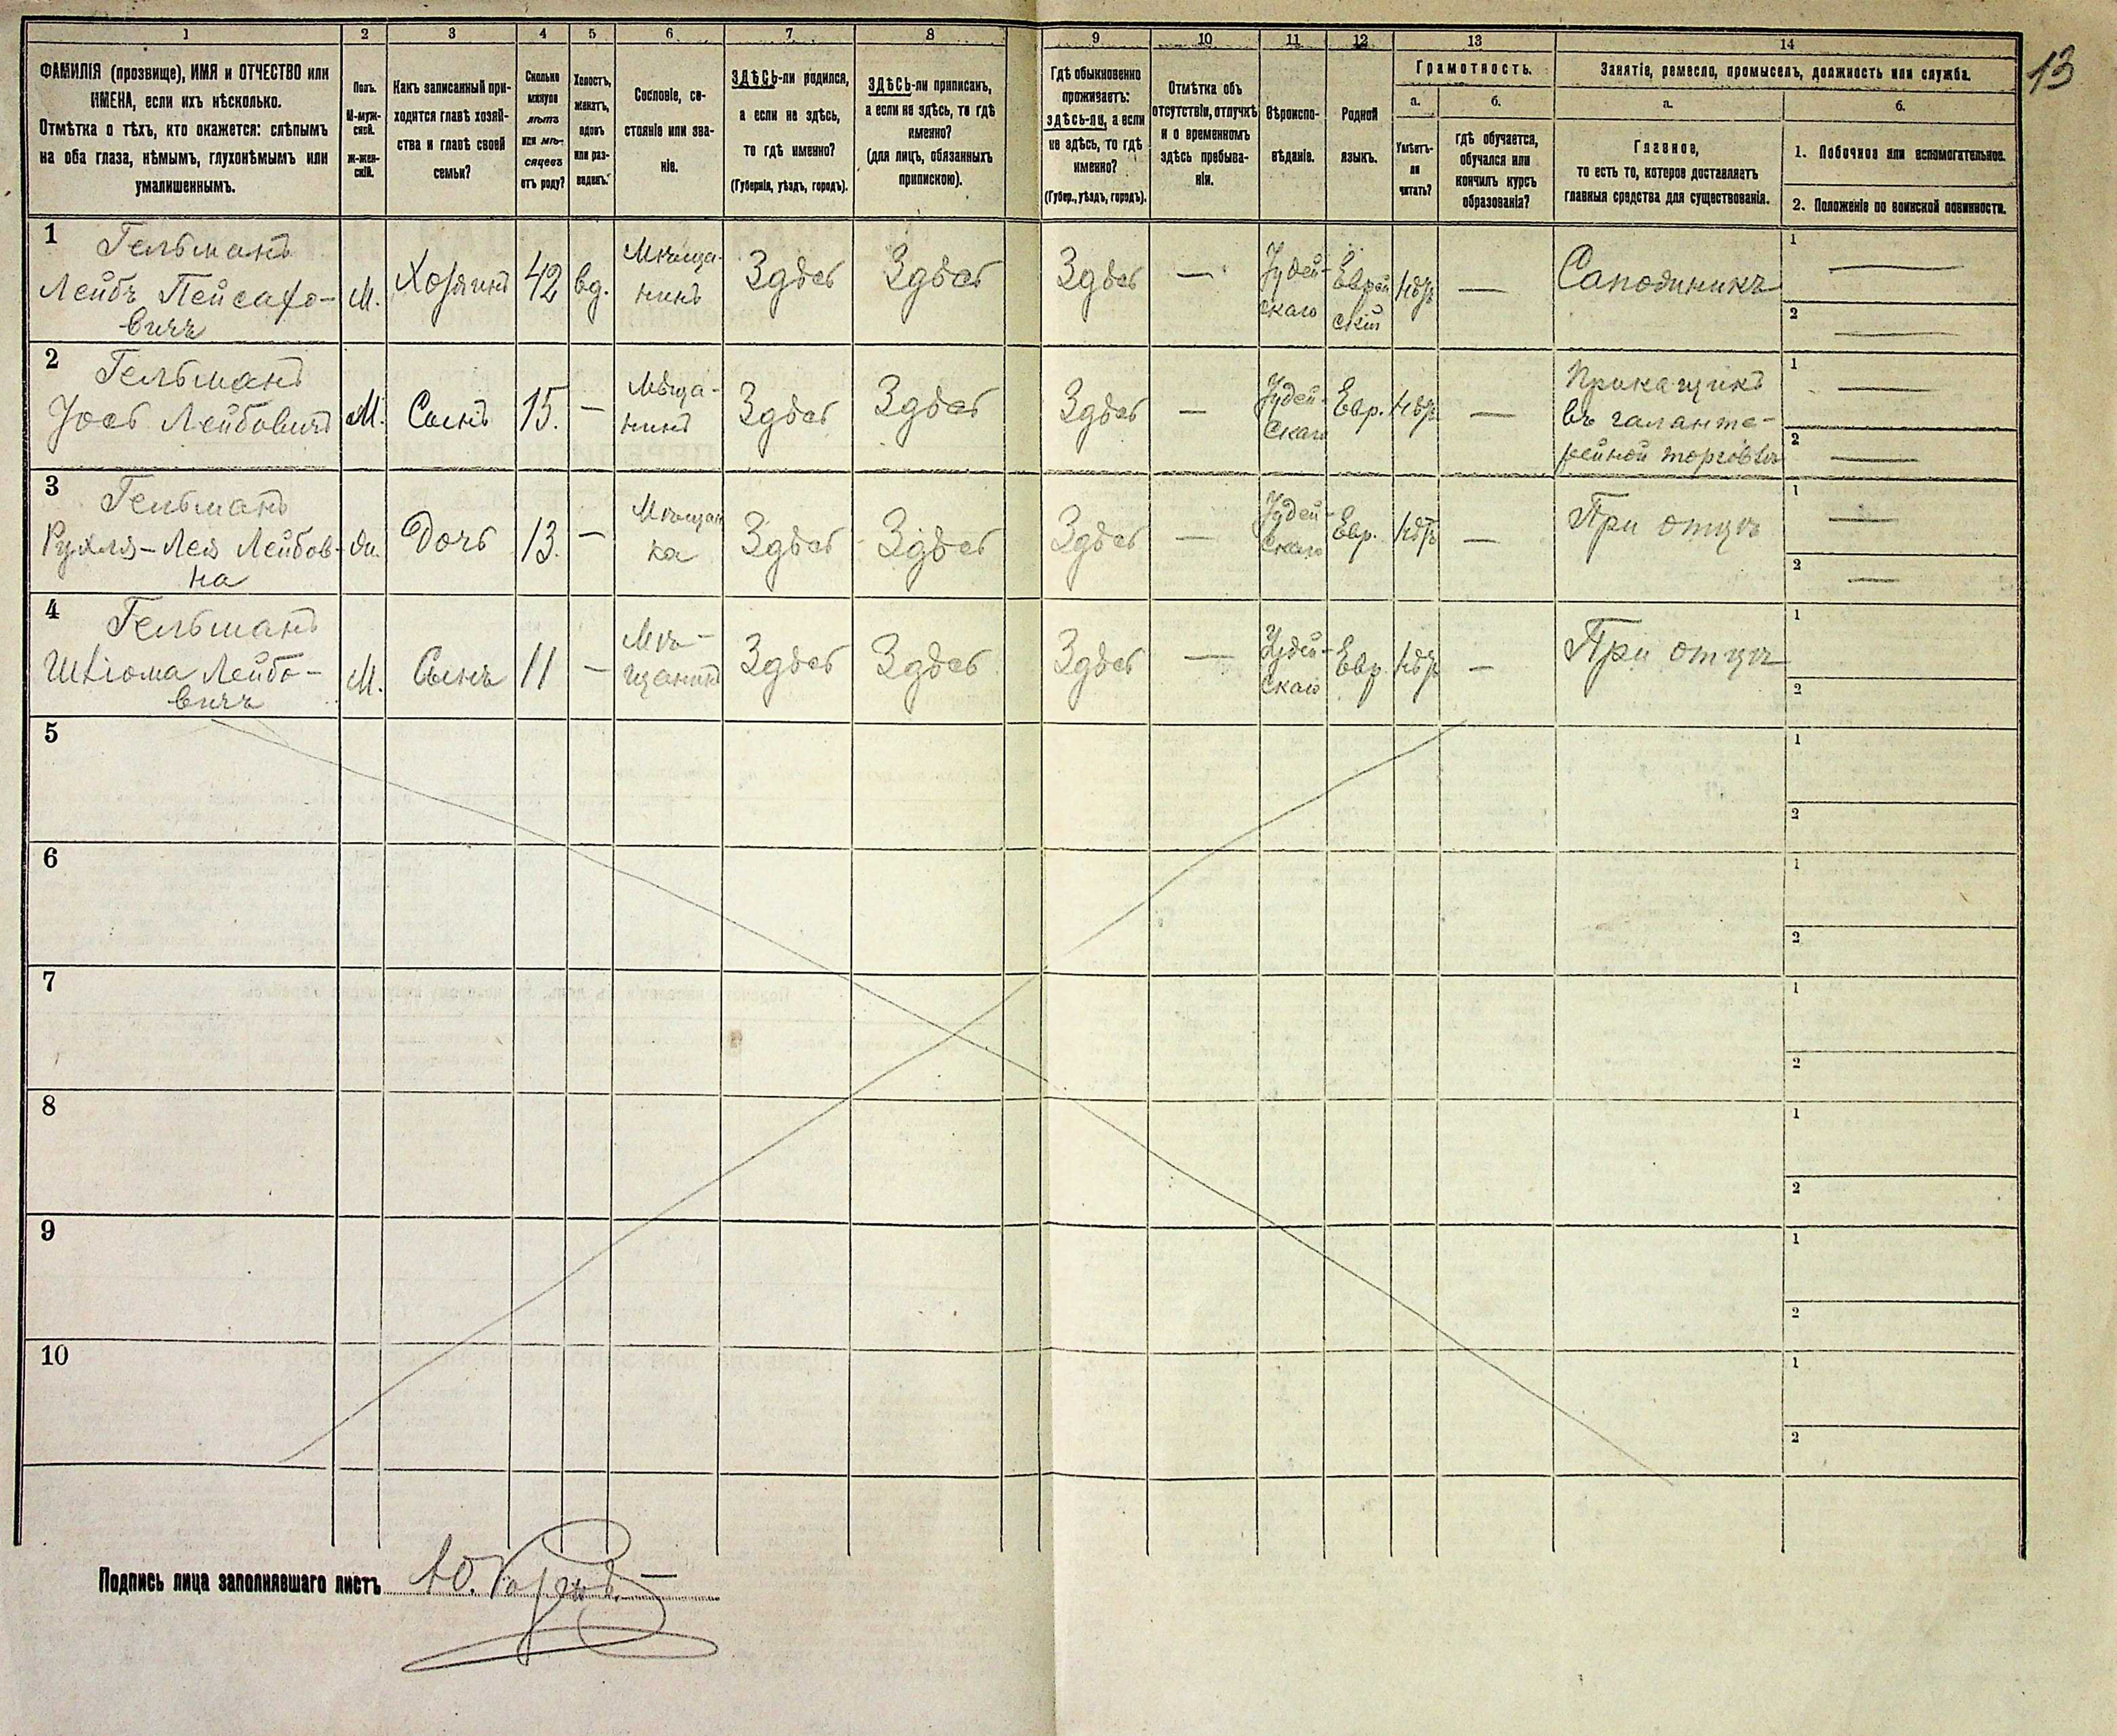 1 2 3 4 5 6 7 8 9 10 11 12 13 14
13
ФАМИЛІЯ (прозвище), ИМЯ и ОТЧЕСТВО или
ИМЕНА, если ихъ нѣсколько.
Отмѣтка о тѣхъ, кто окажется: слѣпымъ
на оба глаза, нѣмымъ, глухонѣмымъ или
умалишеннымъ.
Полъ.
М-муж-
ской.
Ж-жен-
скій.
Какъ записанный при-
ходится главѣ хозяй-
ства и главѣ своей
семьи?
Сколько
минуло
лѣтъ
или мѣ-
сяцевъ
отъ роду?
Холостъ,
женатъ,
вдовъ
или раз-
веденъ.
Сословіе, со-
стояніе или зва-
ніе.
ЗДѢСЬ-ли родился,
а если не здѣсь,
то гдѣ именно?
(Губернія, уѣздъ, городъ).
ЗДѢСЬ-ли приписанъ,
а если не здѣсь, то гдѣ
именно?
(для лицъ, обязанныхъ
припискою).
Гдѣ обыкновенно
проживаетъ:
здѣсь-ли, а если
не здѣсь, то гдѣ
именно?
(Губер., уѣздъ, городъ).
Отмѣтка объ
отсутствіи, отлучкѣ
и о временномъ
здѣсь пребыва-
ніи.
Вѣроиспо-
вѣданіе.
Родной
языкъ.
Грамотность.
а.
Умѣетъ-
ли
читать?
б.
гдѣ обучается,
обучался или
кончилъ курсъ
образованія?
Занятіе, ремесло, промыселъ, должность или служба.
а.
Главное,
то есть то, которое доставляетъ
главныя средства для существованія.
б.
1. Побочное или вспомогательное.
2. Положеніе по воинской повинности.
1
Гельманъ
Лейбъ Пейсахо-
вичъ
М.
Хозяинъ
42
вд.
Мѣща-
нинъ
Здѣсь
Здѣсь
Здѣсь
—
Іудей-
скаго
Еврей
скій
—
Сапожникъ
1 —
2 —
2
Гельманъ
Іось Лейбовичъ
М.
Сынъ
15.
—
Мѣща-
нинъ
Здѣсь
Здѣсь
Здѣсь
—
Іудей-
скаго
Евр.
—
Приказчикъ
въ галанте-
рейной торговлѣ
1 —
2 —
3
Гельманъ
Рухля-Лея Лейбов-
на
Ж.
Дочь
13.
—
Мѣщан
ка
Здѣсь
Здѣсь
Здѣсь
—
Іудей-
скаго
Евр.
—
При отцѣ
1 —
2 —
4
Гельманъ
Шліома Лейбо-
вичъ
М.
Сынъ
11
—
Мѣ-
щанинъ
Здѣсь
Здѣсь
Здѣсь
—
Іудей-
скаго
Евр.
—
При отцѣ
1
2
5
1
2
6
1
2
7
1
2
8
1
2
9
1
2
10
1
2
Подпись лица заполнявшаго листъ